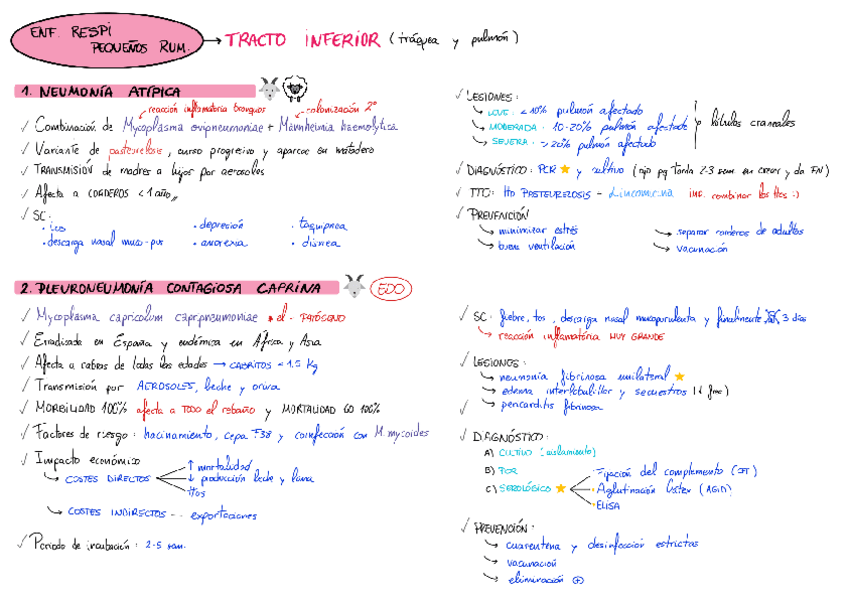 ENF. RESPI
PEQUEÑOS RUM.
→ TRACTO INFERIOR (tráquea y pulmón)
1. NEUMONÍA ATÍPICA
reacción inflamatoria bronquios
colonización 2º
✓ Combinación de Mycoplasma ovipneumoniae + Mannheimia haemolytica
✓ Variante de pasteurelosis, curso progresivo y aparece en matadero
✓ TRANSMISIÓN de madres a hijos por aerosoles
✓ Afecta a CORDEROS < 1 año
✓ SC:
· tos
· depresión
· taquipnea
· descarga nasal muco-pur
· anorexia
· disnea
✓ LESIONES:
→ LEVE: < 10% pulmón afectado
→ MODERADA: 10-20% pulmón afectado
→ SEVERA: > 20% pulmón afectado
lóbulos craneales
✓ DIAGNÓSTICO: PCR ⭐ y cultivo (ojo pq tarda 2-3 sem en crecer y da FN)
✓ TTO: HD PASTEURELOSIS - Lincomicina
combinar los ttos :)
✓ PREVENCIÓN
→ minimizar estrés
→ buena ventilación
→ separar corderos de adultos
→ vacunación
2. PLEURONEUMONÍA CONTAGIOSA CAPRINA
EDO
✓ Mycoplasma capricolum capripneumoniae * el + PATÓGENO
✓ Erradicada en España y endémica en África y Asia
✓ Afecta a cabras de todas las edades → CABRITOS < 15 Kg
✓ Transmisión por AEROSOLES, leche y orina
✓ MORBILIDAD 100% afecta a TODO el rebaño y MORTALIDAD 60-100%
✓ Factores de riesgo: hacinamiento, cepa F38 y coinfección con M mycoides
✓ Impacto económico
→ COSTES DIRECTOS
↑ mortalidad
↓ producción leche y lana
ttos
→ COSTES INDIRECTOS -- exportaciones
✓ Periodo de incubación: 2-5 sem.
✓ SC: fiebre, tos, descarga nasal mucopurulenta y finalmente ☠ 3 días
→ reacción inflamatoria MUY GRANDE
✓ LESIONES:
→ neumonía fibrinosa unilateral ⭐
→ edema interlobulillar y secuestros
→ pericarditis fibrinosa
✓ DIAGNÓSTICO:
A) CULTIVO (aislamiento)
B) PCR
C) SEROLÓGICO ⭐
Fijación del complemento (CFT)
Aglutinación látex (AGID)
ELISA
✓ PREVENCIÓN:
→ cuarentena y desinfección estrictas
→ vacunación
→ eliminación ⊕